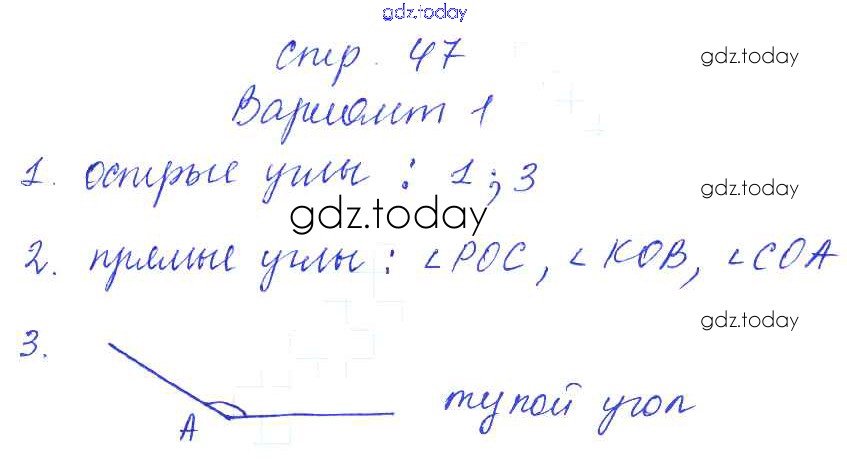 gdz.today
стр. 47
gdz.today
Вариант 1
1. острые углы : 1 ; 3
gdz.today
gdz.today
2. прямые углы : ∠POC, ∠KOB, ∠COA
gdz.today
3.
тупой угол
A